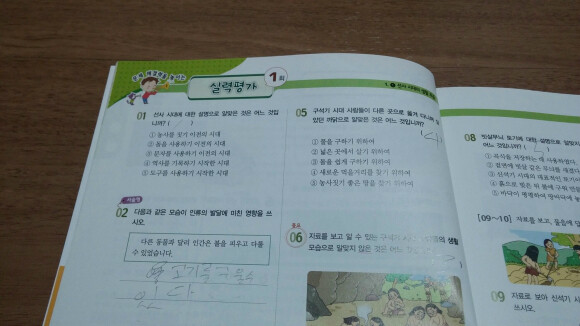 실력평가 1회
01 선사 시대에 대한 설명으로 알맞은 것은 어느 것입
니까? (
① 농사를 짓기 이전의 시대
② 돌을 사용하기 이전의 시대
③ 문자를 사용하기 이전의 시대
④ 역사를 기록하기 시작한 시대
⑤ 도구를 사용하기 시작한 시대
서술형
02 다음과 같은 모습이 인류의 발달에 미친 영향을 쓰
시오.
다른 동물과 달리 인간은 불을 피우고 다룰
수 있었습니다.
고기를
있다
05 구석기 시대 사람들이 다른 곳으로 옮겨
있던 까닭으로 알맞은 것은 어느 것입니까?
① 불을 구하기 위하여
② 넓은 곳에서 살기 위하여
③ 돌을 쉽게 구하기 위하여
④ 새로운 먹을거리를 찾기 위하여
⑤ 농사짓기 좋은 땅을 찾기 위하여
중요
06 자료를 보고 알 수 있는 구석기 생활
모습으로 알맞지 않은 것은 어느
1. ① 선사 시대의
08 빗살무늬 토기에 대한 설명으로
어느 것입니까? (
① 음식을 저장하는 데 사용하였다.
② 겉면에 빗살 같은 무늬를
③ 신석기 시대의 대표적인
④ 흙으로 빚은 뒤 불에 구워
⑤ 바닥이 평평하여 땅바닥에
[09~10] 자료를 보고, 물음에 답
09 자료로 보아 신석기
쓰시오.